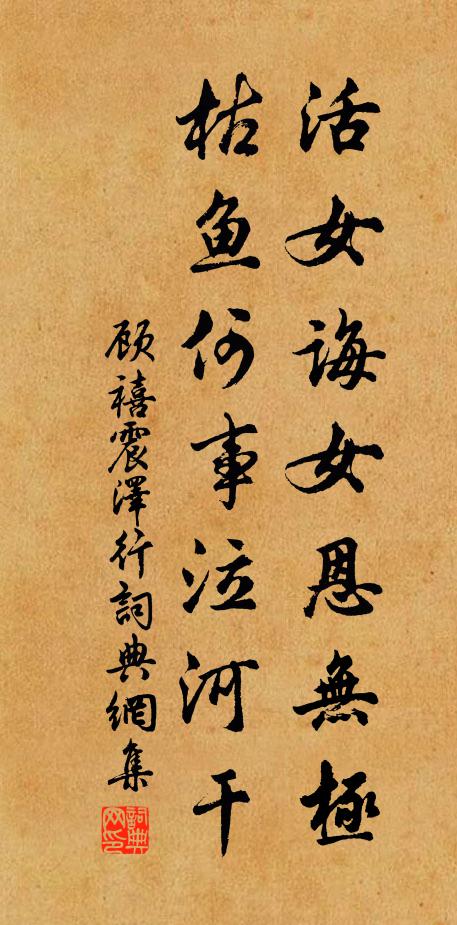 活女诲女恩無極
枯鱼何事泣河干
顾禧震澤行詞典網集
詞典
网印